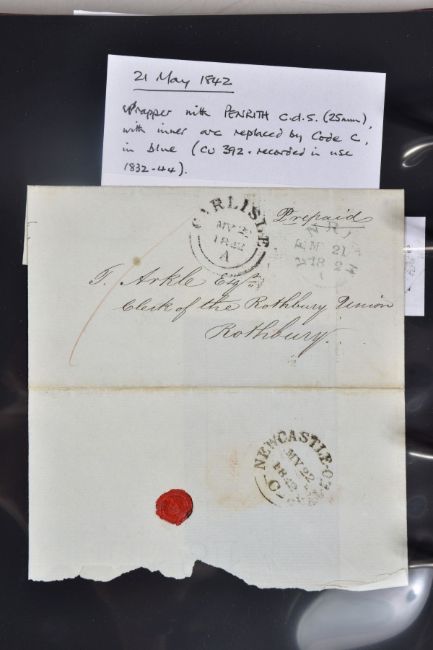 21 May 1842
Wrapper with PENRITH c.d.s. (25mm),
with inner arc replaced by Code C,
in blue (CU 392 - recorded in use
1832-44).
CARLISLE
MY 22
1842
A
Prepaid
MY 21
184
T. Arkle Esqre
Clerk of the Rothbury Union
Rothbury.
NEWCASTLE-O
MY 22
1842
C